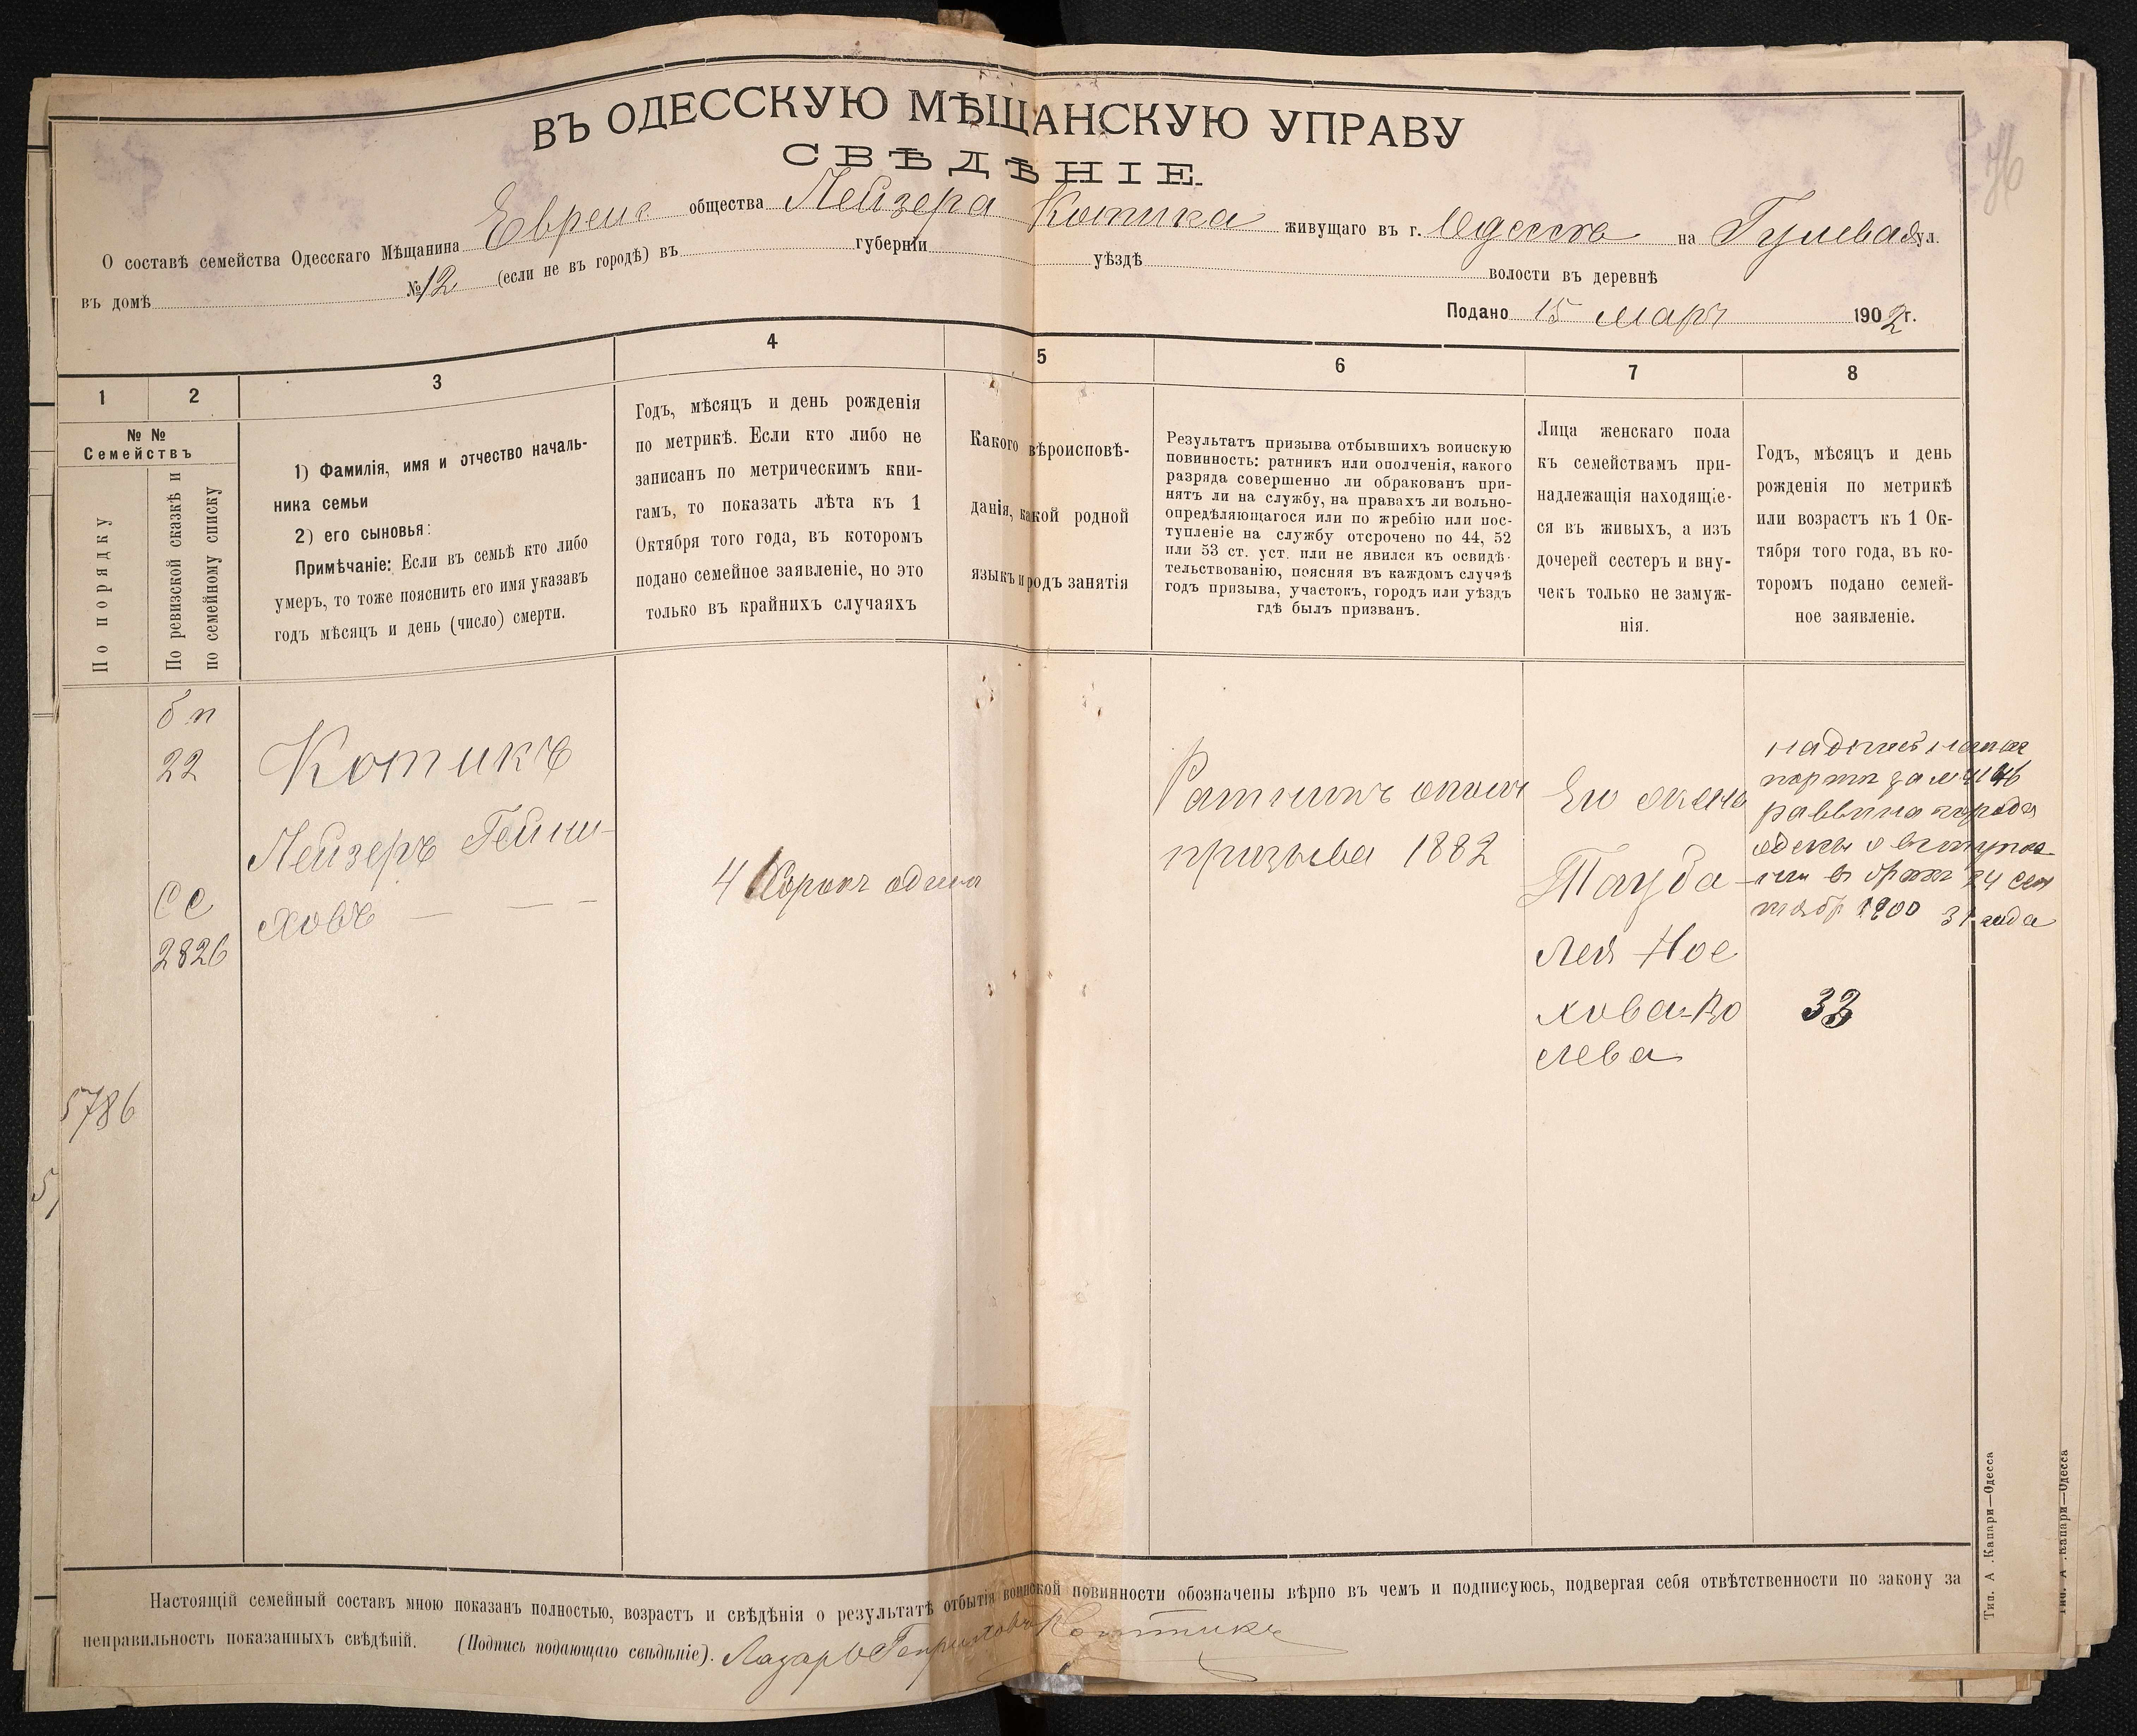 76
ВЪ ОДЕССКУЮ МѢЩАНСКУЮ УПРАВУ
СВѢДѢНІЕ.
О составѣ семейства Одесскаго Мѣщанина общества Лейзера Котика живущаго въ г. Одесса на Гулевая ул.
въ домѣ № 12 (если не въ городѣ) въ губерніи уѣздѣ волости въ деревнѣ
Подано 15 март 1902 г.
1 2 3 4 5 6 7 8
№ №
Семействъ
По порядку
По ревизской сказкѣ и
по семейному списку
1) Фамилія, имя и отчество началь-
ника семьи
2) его сыновья:
Примѣчаніе: Если въ семьѣ кто либо
умеръ, то тоже пояснить его имя указавъ
годъ мѣсяцъ и день (число) смерти.
Годъ, мѣсяцъ и день рожденія
по метрикѣ. Если кто либо не
записанъ по метрическимъ кни-
гамъ, то показать лѣта къ 1
Октября того года, въ которомъ
подано семейное заявленіе, но это
только въ крайнихъ случаяхъ
Какого вѣроисповѣ-
данія, какой родной
языкъ и родъ занятія
Результатъ призыва отбывшихъ воинскую
повинность: ратникъ или ополченія, какого
разряда совершенно ли обракованъ при-
нятъ ли на службу, на правахъ ли вольно-
опредѣляющагося или по жребію или пос-
тупленіе на службу отсрочено по 44, 52
или 53 ст. уст. или не явился къ освидѣ-
тельствованію, поясняя въ каждомъ случаѣ
годъ призыва, участокъ, городъ или уѣздъ
гдѣ былъ призванъ.
Лица женскаго пола
къ семействамъ при-
надлежащія находящіе-
ся въ живыхъ, а изъ
дочерей сестеръ и вну-
чекъ только не замуж-
нія.
Годъ, мѣсяцъ и день
рожденія по метрикѣ
или возрастъ къ 1 Ок-
тября того года, въ ко-
торомъ подано семей-
ное заявленіе.
5786
бп
22
СС
2826
Котикъ
Лейзеръ Гейни-
ховъ
41 Сорокъ одинъ
Ратникъ ополч
призыва 1882
Его жена
Тауба
Лея Ное
хова-Во
лева
раввина города
24 сен
1900 31 года
33
Настоящій семейный составъ мною показанъ полностью, возрастъ и свѣдѣнія о результатѣ отбытія воинской повинности обозначены вѣрно въ чемъ и подписуюсь, подвергая себя отвѣтственности по закону за
неправильность показанныхъ свѣдѣній. (Подпись подающаго свѣдѣніе). Лазарь Генриховъ Коттикъ
Тип. А. Капари—Одесса
Тип. А. Капари—Одесса